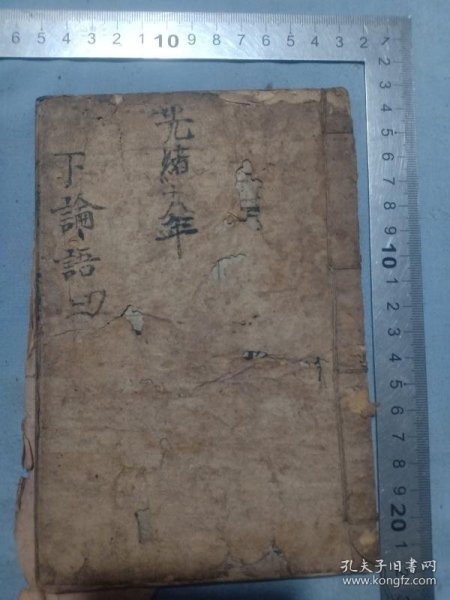 6 5 4 3 2 1 10 9 8 7 6 5 4 3 2
2 3 4 5 6 7 8 9 10 1 2 3 4 5 6 7 8 9 20 1
光緒年
下論語四
孔夫子旧书网
www.kongfz.com